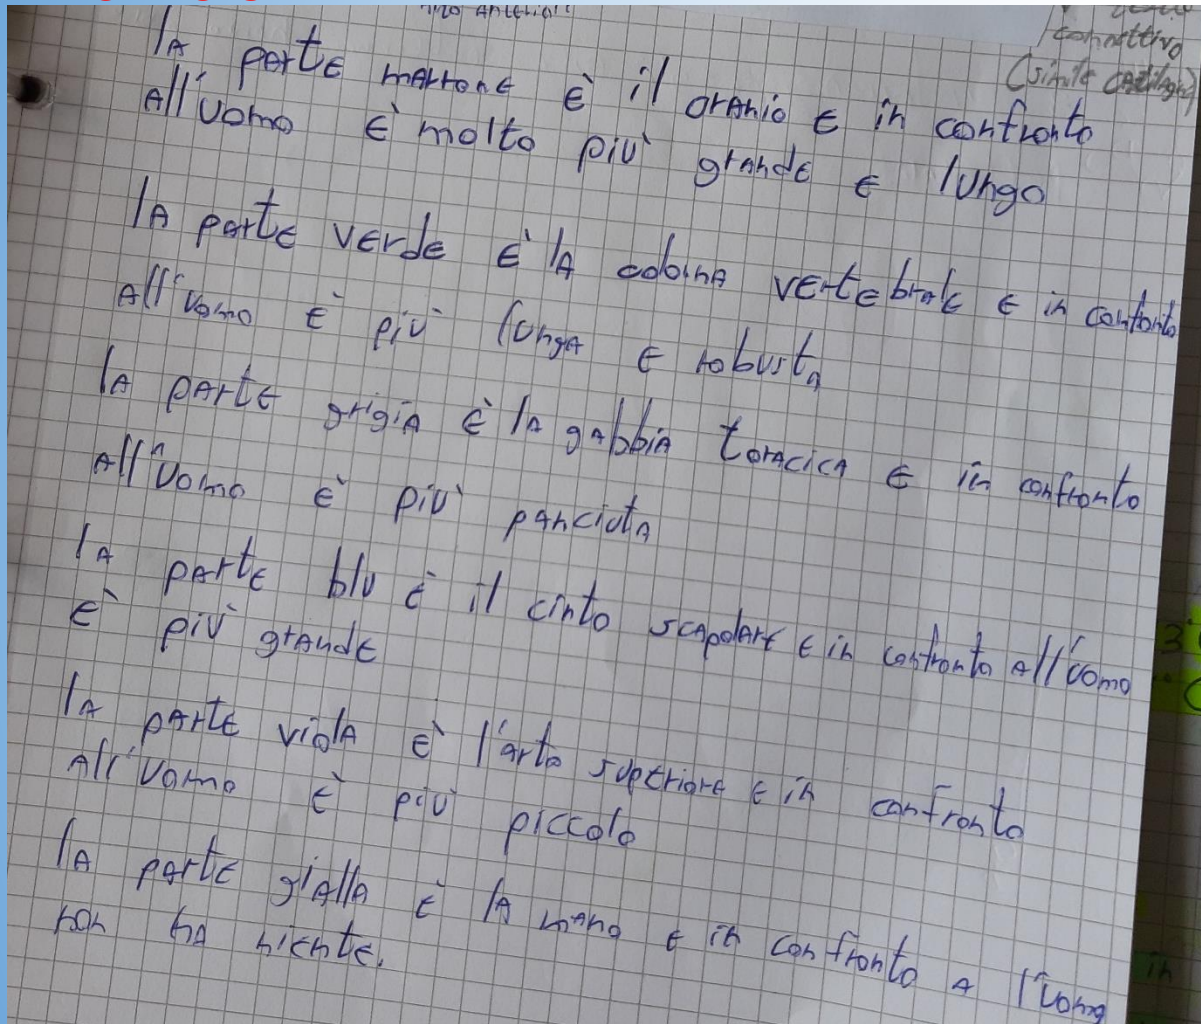 connettivo
(simile
lA parte marrone è il cranio e in confronto
All'uomo è molto più grande e lungo
lA parte verde è lA colonna vertebrale e in confronto
All'uomo è più lunga e robusta
lA parte grigia è la gabbia toracica e in confronto
All'uomo è più panciuta
lA parte blu è il cinto scapolare e in confronto All'uomo
è più grande
lA parte viola è l'arto superiore e in confronto
All'uomo è più piccolo
lA parte gialla è lA mano e in confronto A l'uomo
non ha niente.
3
in